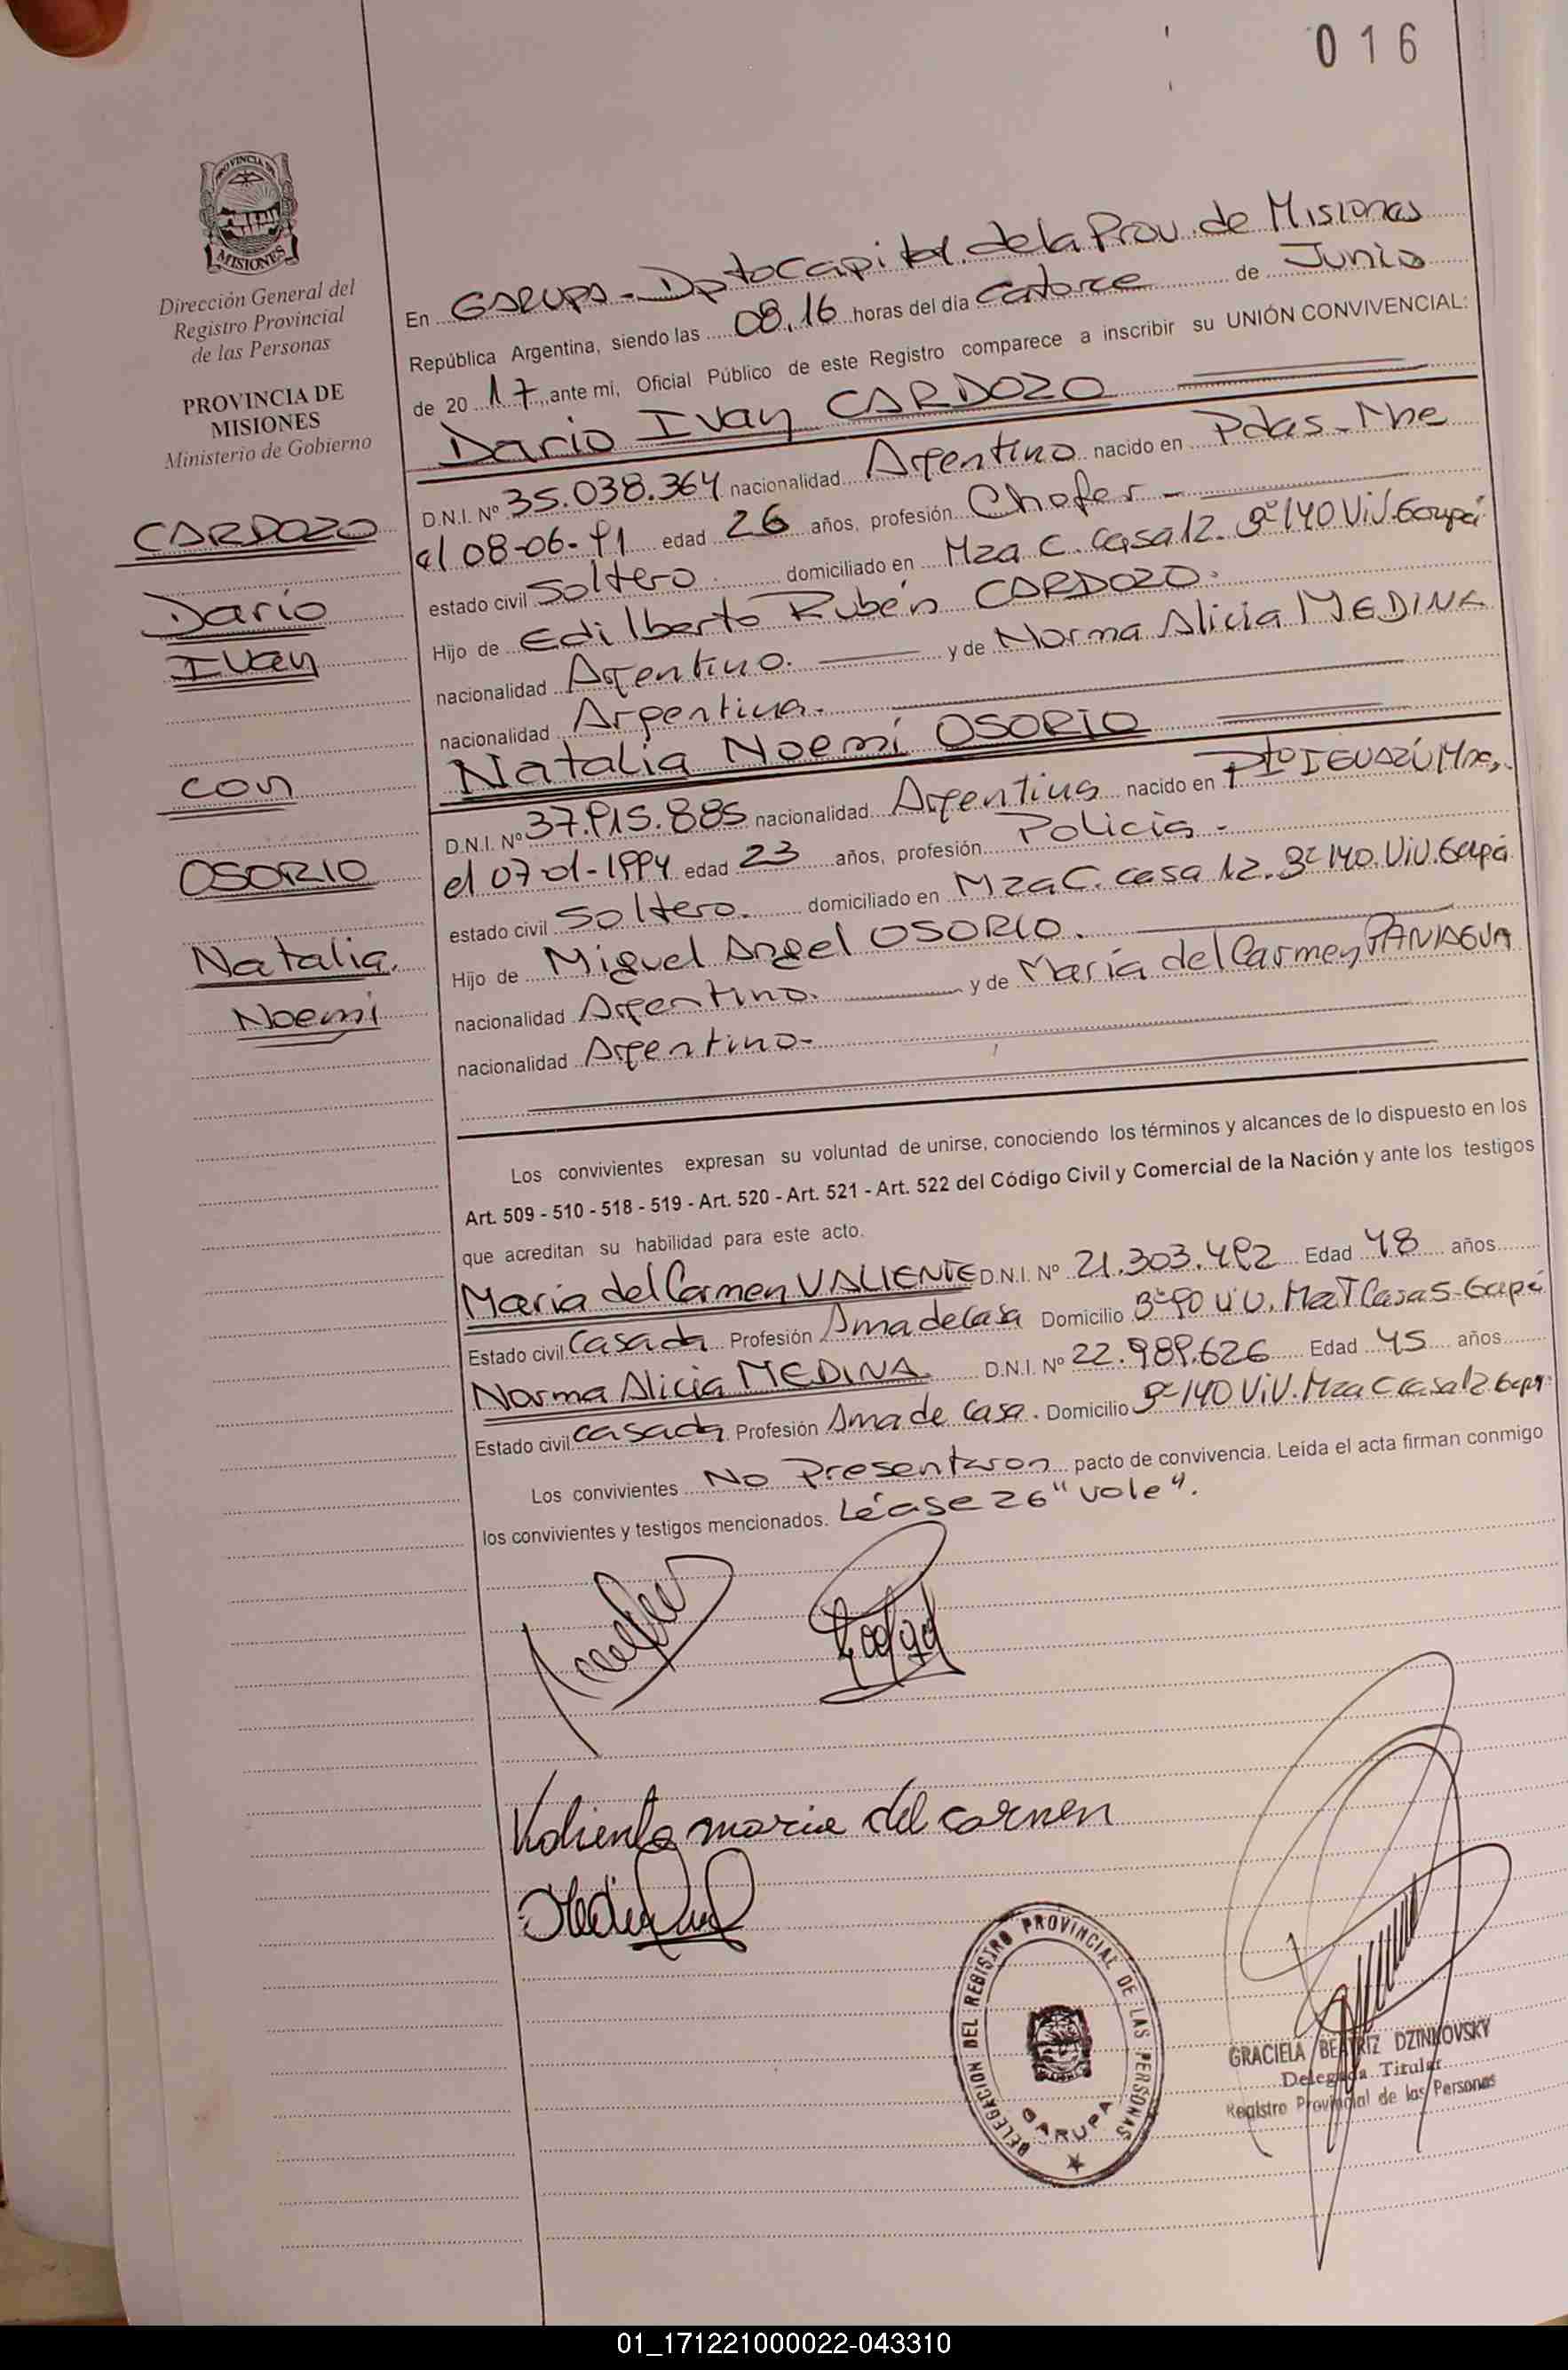 016
PROVINCIA DE
MISIONES
Dirección General del
Registro Provincial
de las Personas
PROVINCIA DE
MISIONES
Ministerio de Gobierno
CARDOZO
Dario
Ivan
con
OSORIO
Natalia
Noemi
En Garupa - Dpto Capital de la Prov. de Misiones
República Argentina, siendo las 08,16 horas del día Catorce de Junio
de 20 17, ante mi, Oficial Público de este Registro comparece a inscribir su UNIÓN CONVIVENCIAL:
Dario Ivan CARDOZO
D.N.I. Nº 35.038.364 nacionalidad Argentino nacido en Pdas - Mnes
el 08-06-91 edad 26 años, profesión Chofer -
estado civil Soltero. domiciliado en Mza C. Casa 12. 140 Viv. Garupá
Hijo de Edilberto Rubén CARDOZO.
nacionalidad Argentino. y de Norma Alicia MEDINA
nacionalidad Argentina.
Natalia Noemí OSORIO
D.N.I. Nº 37.915.885 nacionalidad Argentina nacido en Pto IGUAZÚ Mnes,
el 07-01-1994 edad 23 años, profesión Policia -
estado civil Soltero. domiciliado en Mza C. casa 12. 140. Viv. Garupá
Hijo de Miguel Angel OSORIO.
nacionalidad Argentino. y de María del Carmen PANIAGUA
nacionalidad Argentino-
Los convivientes expresan su voluntad de unirse, conociendo los términos y alcances de lo dispuesto en los
Art. 509 - 510 - 518 - 519 - Art. 520 - Art. 521 - Art. 522 del Código Civil y Comercial de la Nación y ante los testigos
que acreditan su habilidad para este acto.
María del Carmen VALIENTE D.N.I. Nº 21.303.492 Edad 48 años
Estado civil Casada Profesión Ama de Casa Domicilio 90 Mza Casa 5 - Garupá
Norma Alicia MEDINA D.N.I. Nº 22.989.626 Edad 45 años
Estado civil casada Profesión Ama de Casa. Domicilio 140 Viv. Mza C casa 12
Los convivientes No Presentaron pacto de convivencia. Leída el acta firman conmigo
los convivientes y testigos mencionados. Léase 26 "vale".
Valiente maria del carmen
DELEGACION DEL REGISTRO PROVINCIAL DE LAS PERSONAS
GARUPA
GRACIELA BEATRIZ DZINKOVSKY
Delegada Titular
Registro Provincial de las Personas
01_171221000022-043310